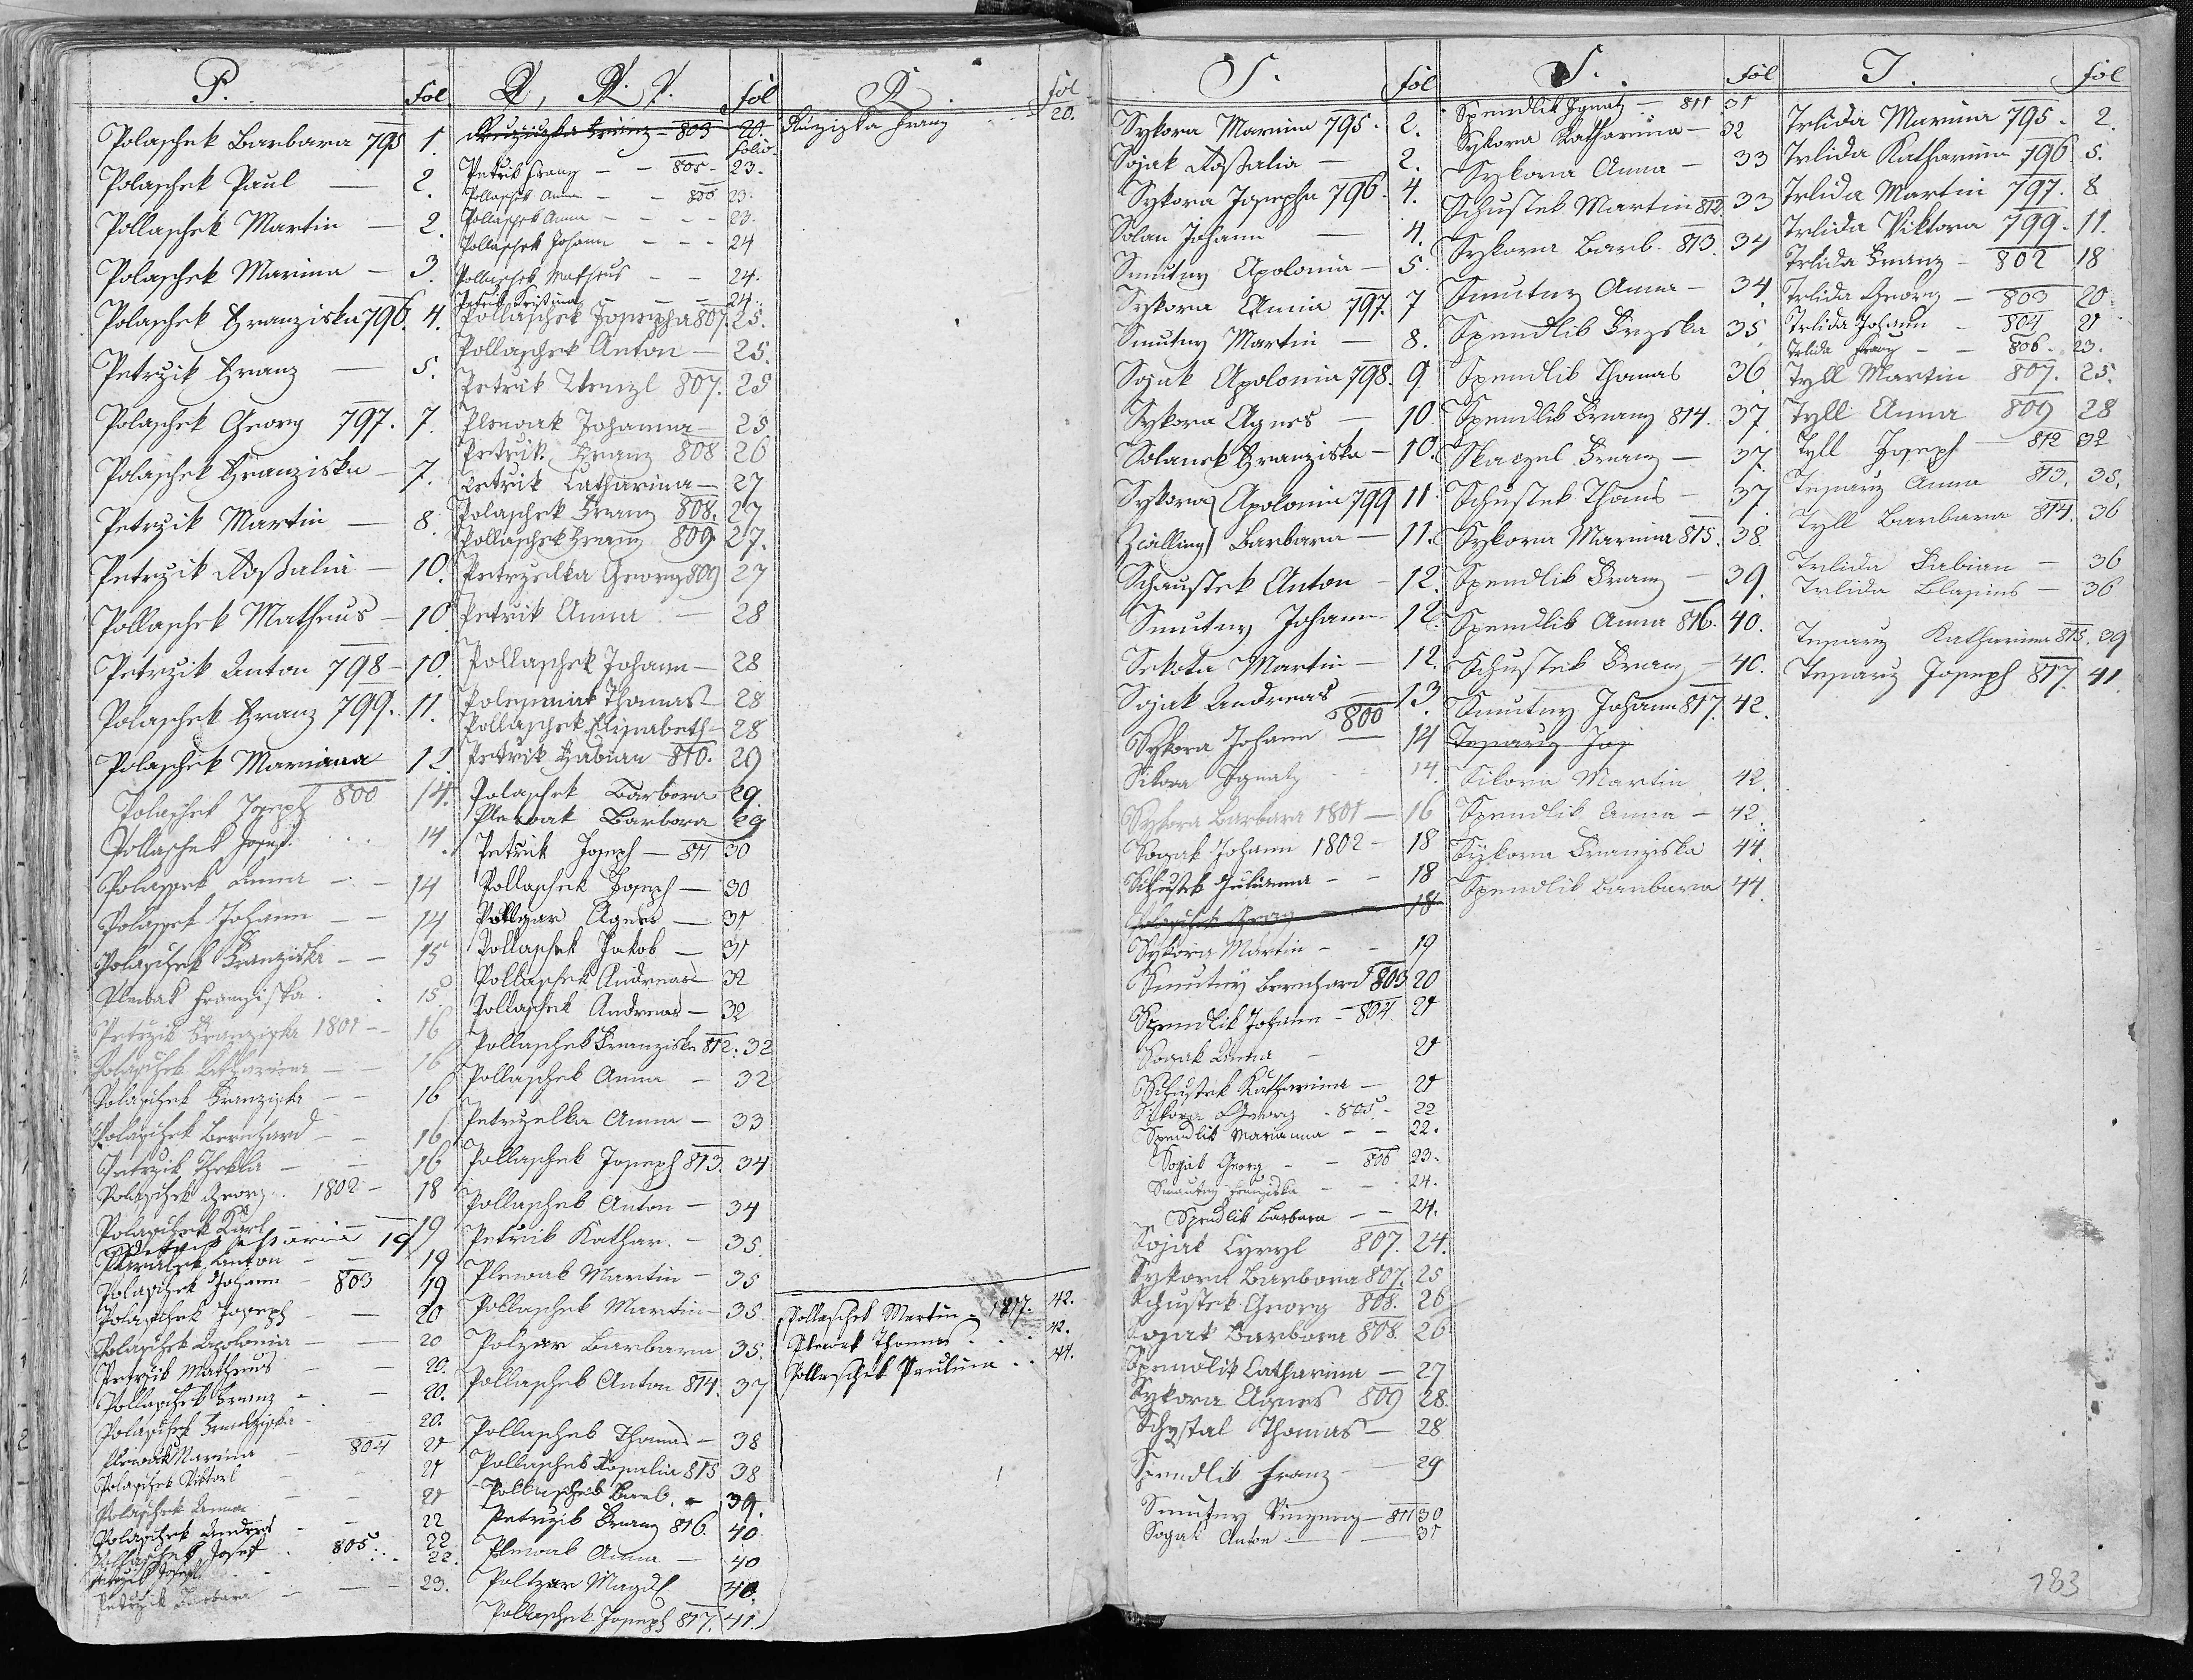 P. Fol
Polaschek Barbara 795 1.
Polaschek Paul — 2.
Pollaschek Martin — 2.
Polaschek Marina — 3.
Polaschek Franziska 796. 4.
Petrzik Franz — 5.
Polaschek Georg 797. 7.
Polaschek Franziska — 7.
Petrzik Martin — 8.
Petrzik Rosalia — 10.
Pollaschek Matheus — 10.
Petrzik Anton 798 — 10.
Polaschek Franz 799. 11.
Polaschek Mariana 12.
Polaschek Joseph 800 14.
Pollaschek Josef. 14.
Polaschek Anna — 14
Polaschek Johann — — 14
Polaschek Franziska — — 15
Plewak Franziska. 15
Petrzik Franziska 1801 — 16
Polaschek Katharina — — 16
Polaschek Franziska — — 16
Polaschek Bernhard — — 16
Petrzik Thekla — — 16
Polaschek Georg 1802 — 18
Polaschek Karl — — 19
19
Anton — 19
Polaschek Johann — 803 19
Polaschek Joseph — 20
Polaschek Apolonia — — 20
Petrzik Matheus — — 20.
Pollaschek Franz — — 20.
Polaschek Franziska — — 20.
Plewak Marina — 804 21
Polaschek Viktorl — 21
Polaschek Anna — 21
Polaschek Andreas — 22
Pollaschek Josef . 805. 22
Petrzik Josef 22.
Petrzik Barbara — — 23.
Fol
Ruzizka Franz — 803 20.
Folio.
Petrik Franz — — 805 — 23.
Pollaschek Anna — — 806 23.
Pollaschek Anna — — — 23.
Pollaschek Johann — — — 24
Pollaschek Matheus — — 24.
Petrik Kristina — — 24.
Pollaschek Josepha 807. 25.
Pollaschek Anton — 25.
Petrik Wenzl 807. 25
Plewak Johanna — 25
Petrik Franz 808 26
Petrik Catharina — 27
Polaschek Franz 808. 27
Pollaschek Franz 809 27.
Petrzelka Georg 809 27
Petrik Anna — 28
Pollaschek Johann — 28
Thomas — 28
Pollaschek Elisabeth — 28
Petrik Fabian 810. 29
Polaschek Barbora 29.
Plewak Barbora 29
Petrik Joseph — 811 30
Pollaschek Joseph — 30
Agnes — 31
Pollaschek Jakob — 31
Pollaschek Andreas — 32
Pollaschek Andreas — 32
Pollaschek Franziska 812. 32
Pollaschek Anna — 32
Petrzelka Anna — 33
Pollaschek Joseph 813. 34
Pollaschek Anton — 34
Petrik Kathar. — 35.
Plewak Martin — 35
Pollaschek Martin — 35.
Polzar Barbara 35.
Pollaschek Anton 814. 37
Pollaschek Thomas — 38
Pollaschek Rosalia 815 38
Pollaschek Barb. — 39.
Petrzik Franz 816. 40.
Plewak Anna — 40
Poltzar Magd. 40.
Pollaschek Joseph 817. 41.
R. Fol
Ruzizka Franz 20.
Pollaschek Martin — 1817. 42.
Plewak Thomas . . . 42.
Pollaschek Paulina . . 44.
S. Fol
Sykora Marina 795. 2.
Sojak Rosalia — 2.
Sykora Josepha 796. 4.
Solan Johann — 4.
Smutny Apolonia — 5.
Sykora Anna 797. 7
Smutny Martin — 8.
Sojak Apolonia 798. 9
Sykora Agnes — 10.
Solansk Franziska — 10.
Sykora Apolonia 799 11.
Zwilling Barbara — 11.
Schaustek Anton — 12.
Smutny Johann — 12.
Sekota Martin — 12.
Sojak Andreas — 13.
Sykora Johann 800 14
Sikora Ignatz 14.
Sykora Barbara 1801 — 16
Sogak Johann 1802 — 18
Schustek Julianna — — 18
Polaschek Georg 18
Sykora Martin — — 19
Smutny Bernhard 803 20
Spendlik Johann — 804. 21
Sogak Anna — 21
Schustek Katharina — 21
Sikora Georg — 805 — 22
Spendlik Marianna — — 22.
Sogak Georg — — 806 23.
Smutny Franziska — — 24.
Spendlik Barbara — — 24.
Sojak Cyryl 807. 24.
Sykora Barbora 807. 25
Schustek Georg 808. 26
Sojak Barbora 808. 26
Spendlik Catharina — 27
Sykora Agnes 809 28.
Schystal Thomas — 28
Spendlik Franz — 29
Smutny Vinzenz — 811 30
Sogak Anton — 31
S. Fol
Spendlik Ignatz — 811 31
Sykora Katharina — 32
Sykora Anna — 33
Schustek Martin 812. 33
Sykora Barb. 813. 34
Smutny Anna — 34
Spendlik Frzska 35.
Spendlik Thomas 36
Spendlik Franz 814. 37.
Skaczel Franz — 37.
Schustek Thomas — 37
Sykora Marina 815. 38.
Spendlik Franz — 39.
Spendlik Anna 816. 40.
Schustek Franz — 40.
Smutny Johann 817. 42.
Tesarz Jos
Sikora Martin 42.
Spendlik Anna — 42.
Sykora Franziska 44.
Spendlik Barbara 44.
T. Fol
Trlida Marina 795. 2.
Trlida Katharina 796 5.
Trlida Martin 797. 8
Trlida Viktora 799. 11.
Trlida Franz — 802 18
Trlida Georg — 803 20
Trlida Johann — 804 21
Trlida Franz — — 806. 23.
Tyll Martin 807. 25.
Tyll Anna 809 28
Tyll Joseph — 812 32
Tesarz Anna 813. 35.
Tyll Barbara 814. 36
Trlida Fabian — 36
Trlida Blasius — 36
Tesarz Katharina 815. 39
Tesarz Joseph 817. 41.
183